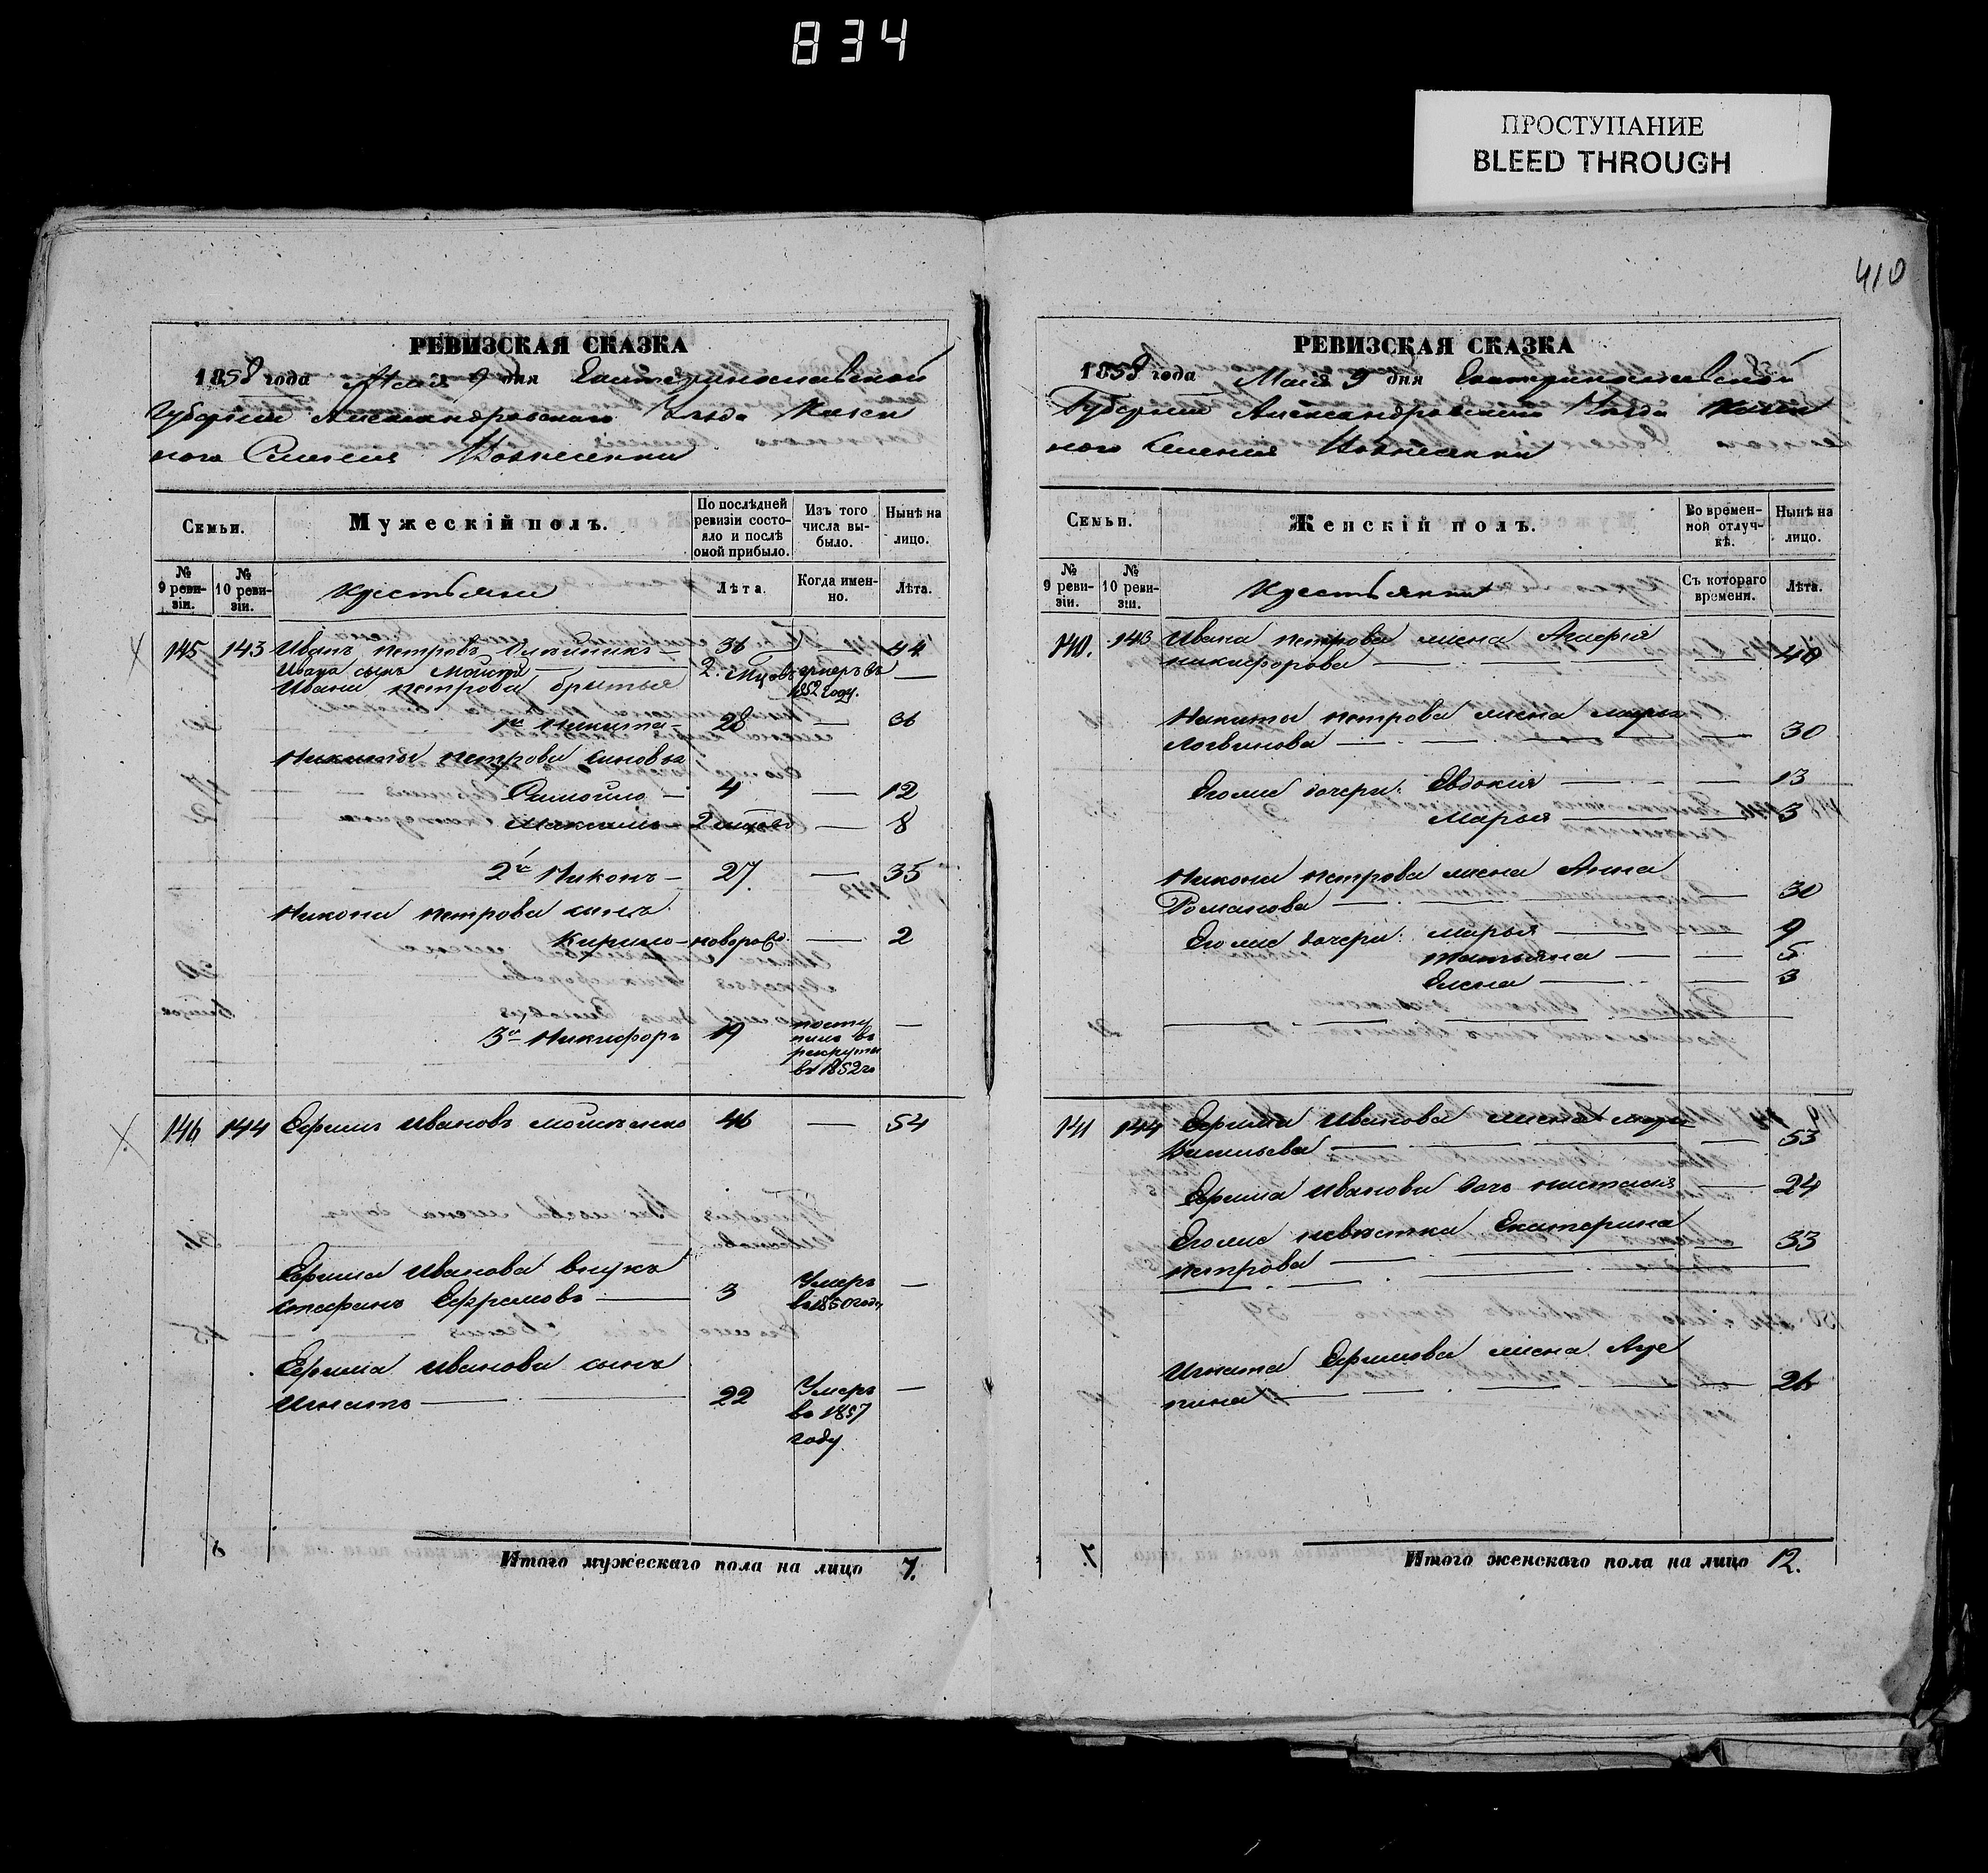 834
ПРОСТУПАНИЕ
BLEED THROUGH
410
РЕВИЗСКАЯ СКАЗКА
1858 года Маія 9 дня Екатеринославской
Губерніи Александровскаго Уезда Казен
ного Селенія Вознесенки
Семьи.
Мужескій полъ.
По послѣдней ревизіи состояло и послѣ оной прибыло.
Изъ того числа выбыло.
Нынѣ на лицо.
№ 9 ревизіи.
№ 10 ревизіи.
Крестьяне
Лѣта.
Когда именно.
Лѣта.
145 143 Иванъ Петровъ Олейникъ — 36 — 44
Ивана сынъ Мойсей — 2. Мцовъ умеръ въ 1852 году. —
Ивана Петрова братья
1й Никита — 28 — 36
Никиты Петрова сыновья
Самойло — 4 — 12
Максимъ — 2 мцовъ — 8
2й Никонъ — 27. — 35
Никона Петрова сынъ
Кирило — новорож. — 2
3й Никифоръ 19 поступилъ въ рекруты въ 1852 го —
146 144 Ефимъ Ивановъ 46 — 54
Ефима Иванова внукъ
Стефанъ Ефремовъ — 3 Умеръ въ 1850 году —
Ефима Иванова сынъ
Игнатъ — 22 Умеръ въ 1857 году. —
Итого мужескаго пола на лицо 7.
РЕВИЗСКАЯ СКАЗКА
1858 года Маія 9 дня Екатеринославской
Губерніи Александровскаго Уезда Казен
ного Селенія Вознесенки
Семьи.
Женскій полъ.
Во временной отлучкѣ.
Нынѣ на лицо.
№ 9 ревизіи.
№ 10 ревизіи.
Крестьянки
Съ котораго времени.
Лѣта.
140. 143 Ивана Петрова жена
Никифорова — 40
Никиты Петрова жена Марья
Логвинова — 30
Егоже дочери: Евдокія — 13
Марья — 3
Никона Петрова жена Анна
Романова — 30
Егоже дочери: Марья — 9
Татьяна — 5
Елена — 3
141 144 Ефима Иванова жена
Васильева — 53
Ефима Иванова дочь Наталія — 24
Егоже невѣстка Екатерина
Петрова — 33
Игната Ефимова жена Агре
пина — 26
7.
Итого женскаго пола на лицо 12.